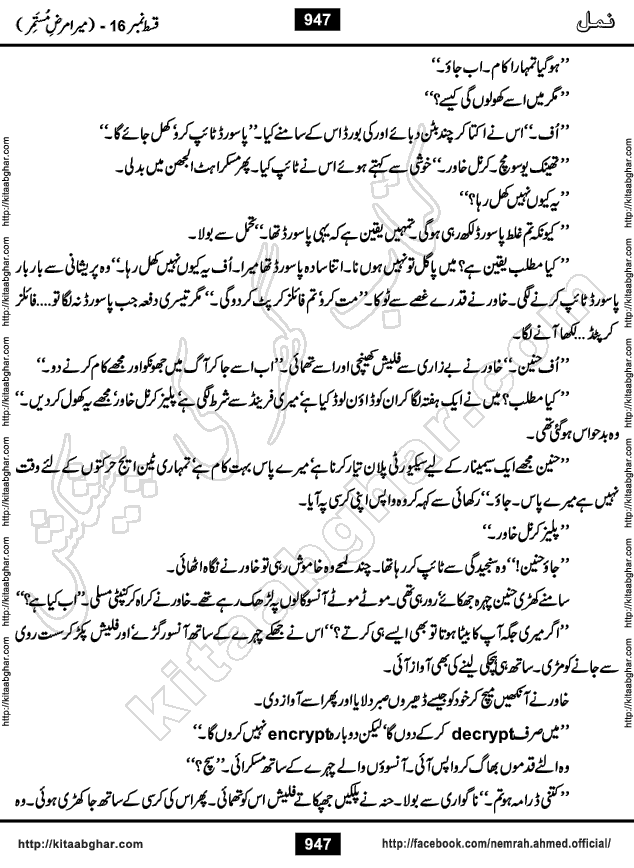 نمل
947
قسط نمبر 16 - (میرا مرضِ مُستَمِر )
’’ہوگیا تمہارا کام۔ اب جاؤ۔‘‘
’’مگر میں اسے کھولوں گی کیسے؟‘‘
’’اُف۔‘‘ اس نے اکتا کر چند بٹن دبائے اور کی بورڈ اس کے سامنے کیا۔ ’’پاسورڈ ٹائپ کرو‘ کھل جائے گا۔‘‘
’’تھینک یو سو مچ۔ کرنل خاور۔‘‘ خوشی سے کہتے ہوئے اس نے ٹائپ کیا۔ پھر مسکراہٹ الجھن میں بدلی۔
’’یہ کیوں نہیں کھل رہا؟‘‘
’’کیونکہ تم غلط پاسورڈ لکھ رہی ہوگی۔ تمہیں یقین ہے کہ یہی پاسورڈ تھا۔‘‘ تحمل سے بولا۔
’’کیا مطلب یقین ہے؟ میں پاگل تو نہیں ہوں نا۔ اتنا سادہ پاسورڈ تھا میرا۔ اُف یہ کیوں نہیں کھل رہا۔‘‘ وہ پریشانی سے بار بار
پاسورڈ ٹائپ کرنے لگی۔ خاور نے قدرے غصے سے ٹوکا۔ ’’مت کرو‘ تم فائلز کرپٹ کردوگی۔‘‘ مگر تیسری دفعہ جب پاسورڈ نہ لگا تو.... فائلز
کرپٹڈ... لکھا آنے لگا۔
’’اُف حنین۔‘‘ خاور نے بے زاری سے فلیش کھینچی اور اسے تھمائی۔ ’’اب اسے جا کر آگ میں جھونکو اور مجھے کام کرنے دو۔‘‘
’’کیا مطلب؟ میں نے ایک ہفتہ لگا کر ان کو ڈاؤن لوڈ کیا ہے‘ میری فرینڈ سے شرط لگی ہے‘ پلیز کرنل خاور‘ مجھے یہ کھول کر دیں۔‘‘
وہ بدحواس ہوگئی تھی۔
’’حنین مجھے ایک سیمینار کے لیے سیکیورٹی پلان تیار کرنا ہے‘ میرے پاس بہت کام ہے‘ تمہاری ٹین ایج حرکتوں کے لئے وقت
نہیں ہے میرے پاس۔ جاؤ۔‘‘ رکھائی سے کہہ کر وہ واپس اپنی کرسی پہ آیا۔
’’پلیز کرنل خاور۔‘‘
’’جاؤ حنین!‘‘ وہ سنجیدگی سے ٹائپ کر رہا تھا۔ چند لمحے وہ خاموش رہی تو خاور نے نگاہ اٹھائی۔
سامنے کھڑی حنین چہرہ جھکائے‘ رو رہی تھی۔ موٹے موٹے آنسو گالوں پہ لڑھک رہے تھے۔ خاور نے کراہ کر کنپٹی مسلی۔ ’’اب کیا ہے؟‘‘
’’اگر میری جگہ آپ کا بیٹا ہوتا تو بھی ایسے ہی کرتے؟‘‘ اس نے جھکے چہرے کے ساتھ آنسو رگڑے‘ اور فلیش پکڑ کر سست روی
سے جانے کو مڑی۔ ساتھ ہی ہچکی لینے کی بھی آواز آئی۔
خاور نے آنکھیں میچ کر خود کو جیسے ڈھیروں صبر دلایا اور پھر اسے آواز دی۔
’’میں صرف decrypt کر کے دوں گا‘ لیکن دوبارہ encrypt نہیں کروں گا۔‘‘
وہ الٹے قدموں بھاگ کر واپس آئی۔ آنسوؤں والے چہرے کے ساتھ مسکرائی۔ ’’سچ؟‘‘
’’کتنی ڈرامہ ہو تم۔‘‘ ناگواری سے بولا۔ حنہ نے پلکیں جھپکاتے فلیش اس کو تھمائی۔ پھر اس کی کرسی کے ساتھ جا کھڑی ہوئی۔ وہ
کتاب گھر کی پیشکش
kitaabghar.com
http://kitaabghar.com http://kitaabghar.com http://kitaabghar.com http://kitaabghar.com http://kitaabghar.com http://kitaabghar.com
http://kitaabghar.com http://kitaabghar.com http://kitaabghar.com http://kitaabghar.com http://kitaabghar.com http://kitaabghar.com
http://kitaabghar.com
947
http://facebook.com/nemrah.ahmed.official/